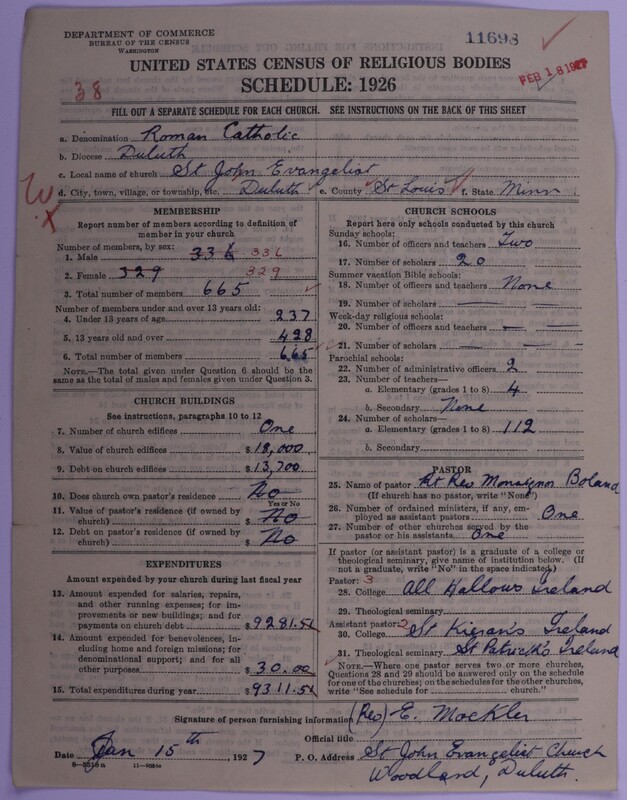 DEPARTMENT OF COMMERCE
BUREAU OF THE CENSUS
WASHINGTON
11698
FEB 18 1927
UNITED STATES CENSUS OF RELIGIOUS BODIES
SCHEDULE: 1926
38
FILL OUT A SEPARATE SCHEDULE FOR EACH CHURCH. SEE INSTRUCTIONS ON THE BACK OF THIS SHEET
a. Denomination Roman Catholic
b. Diocese Duluth
c. Local name of church St John Evangelist
d. City, town, village, or township, etc. Duluth e. County St Louis f. State Minn
MEMBERSHIP
Report number of members according to definition of
member in your church
Number of members, by sex:
1. Male 336 336
2. Female 329 329
3. Total number of members 665
Number of members under and over 13 years old:
4. Under 13 years of age 237
5. 13 years old and over 428
6. Total number of members 665
NOTE.—The total given under Question 6 should be
same as the total of males and females given under Question 3.
CHURCH BUILDINGS
See instructions, paragraphs 10 to 12
7. Number of church edifices One
8. Value of church edifices $ 18,000
9. Debt on church edifices $ 13,700
10. Does church own pastor's residence No
Yes or No
11. Value of pastor's residence (if owned by
church) $ No
12. Debt on pastor's residence (if owned by
church) $ No
EXPENDITURES
Amount expended by your church during last fiscal year
13. Amount expended for salaries, repairs,
and other running expenses; for im-
provements or new buildings; and for
payments on church debt $ 9281.54
14. Amount expended for benevolences, in-
cluding home and foreign missions; for
denominational support; and for all
other purposes $ 30.00
15. Total expenditures during year $ 9311.54
CHURCH SCHOOLS
Report here only schools conducted by this church
Sunday schools:
16. Number of officers and teachers Two
17. Number of scholars 20
Summer vacation Bible schools:
18. Number of officers and teachers None
19. Number of scholars —
Week-day religious schools:
20. Number of officers and teachers — —
21. Number of scholars — —
Parochial schools:
22. Number of administrative officers 2
23. Number of teachers—
a. Elementary (grades 1 to 8) 4
b. Secondary None
24. Number of scholars—
a. Elementary (grades 1 to 8) 112
b. Secondary
PASTOR
25. Name of pastor Rt Rev Monsignor Boland
(If church has no pastor, write "None")
26. Number of ordained ministers, if any, em-
ployed as assistant pastors One
27. Number of other churches served by the
pastor or his assistants One
If pastor (or assistant pastor) is a graduate of a college or
theological seminary, give name of institution below. (If
not a graduate, write "No" in the space indicated)
Pastor: 3
28. College All Hallows Ireland
29. Theological seminary
Assistant pastor: 2
30. College St Kieran's Ireland
31. Theological seminary St Patrick's Ireland
NOTE.—Where one pastor serves two or more churches,
Questions 28 and 29 should be answered only on the schedule
for one of the churches; on the schedules for the other churches,
write "See schedule for church."
Signature of person furnishing information (Rev) E. Mockler
Official title
Date Jan 15th 1927 P. O. Address St John Evangelist Church
Woodland, Duluth.